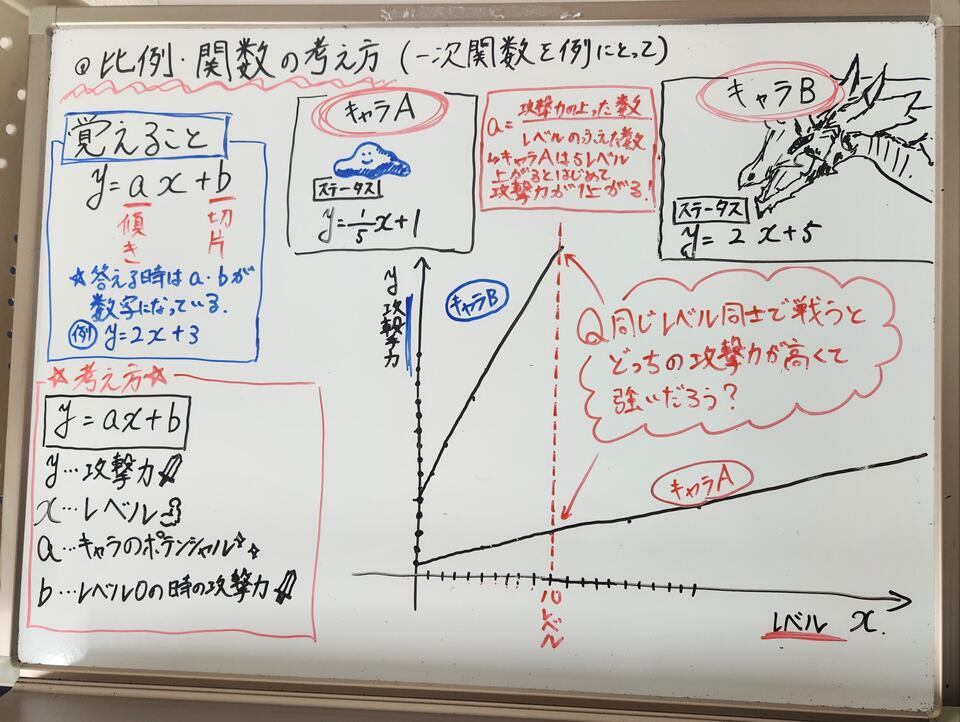 ◎比例・関数の考え方(一次関数を例にとって)
覚えること
y=ax+b
傾き
切片
☆答える時はa・bが
数字になっている.
例 y=2x+3
☆考え方☆
y=ax+b
y…攻撃力
x…レベル
a…キャラのポテンシャル
b…レベル0の時の攻撃力
キャラA
ステータス
y=1/5x+1
a=攻撃力の上った数/レベルのふえた数
↳キャラAは5レベル
上がるとはじめて
攻撃力が1上がる!
キャラB
ステータス
y=2x+5
y
攻撃力
キャラB
Q同じレベル同士で戦うと
どっちの攻撃力が高くて
強いだろう?
キャラA
10レベル
レベル x.